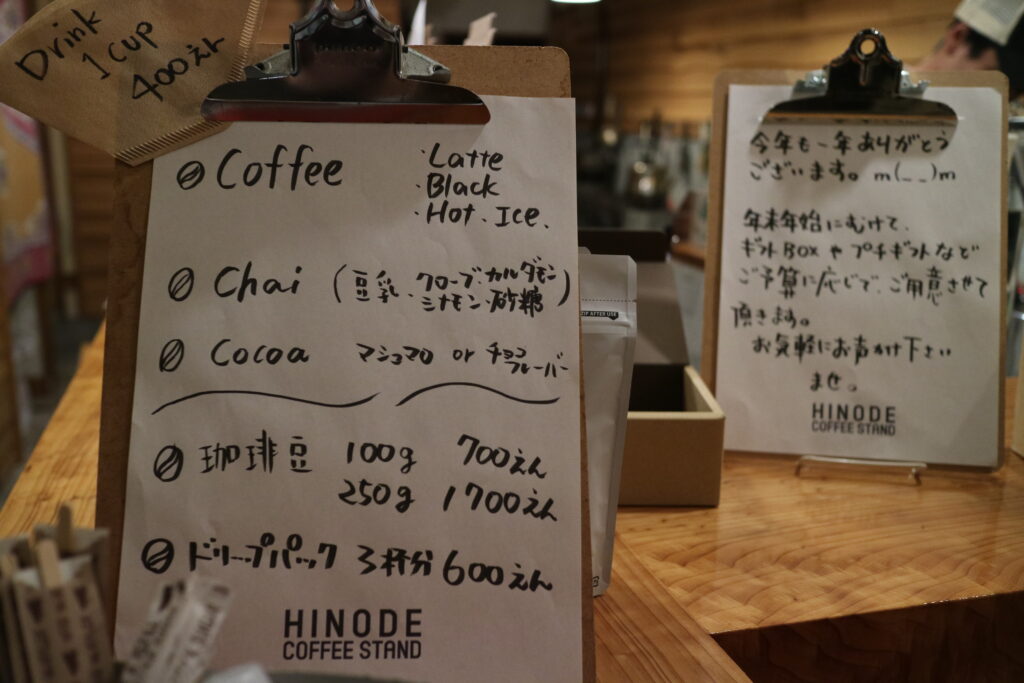 Drink
1 cup
400えん
Coffee
・Latte
・Black
・Hot・Ice.
Chai (豆乳・クローブ・カルダモン
シナモン・砂糖)
Cocoa マシュマロ or チョコ
フレーバー
珈琲豆 100g 700えん
250g 1700えん
ドリップパック 3杯分 600えん
HINODE
COFFEE STAND
今年も一年ありがとう
ございます。m(_ _)m
年末年始にむけて、
ギフトBOXやプチギフトなど
ご予算に応じて、ご用意させて
頂きます。
お気軽にお声かけ下さい
ませ。
HINODE
COFFEE STAND